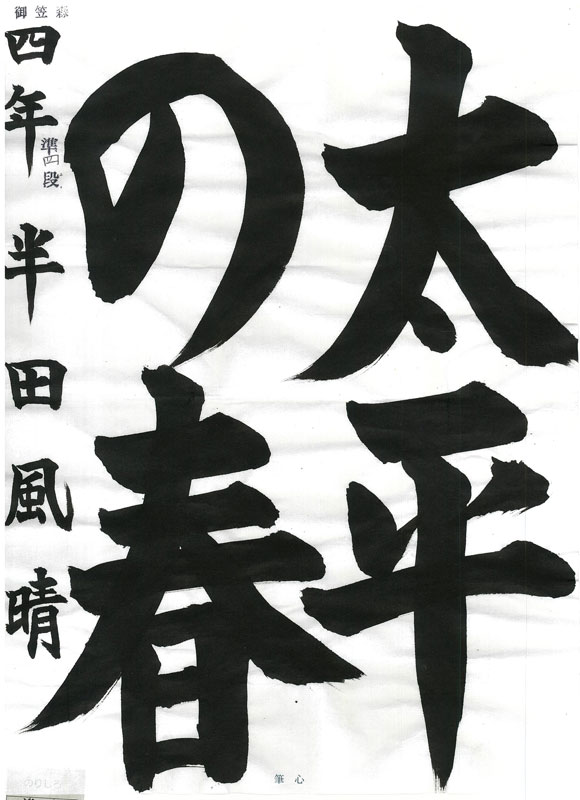 太平
の春
御笠森
四年 半田風晴
準四段
心筆
のりしろ